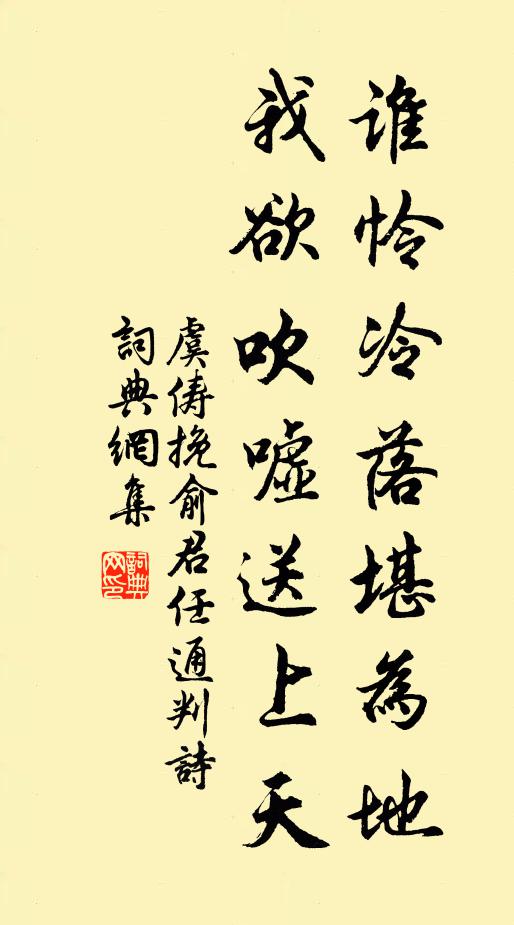 誰怜冷落堪為地
我欲吹噓送上天
虞儔挽俞君任通判詩
詞典網集
詞典
网印